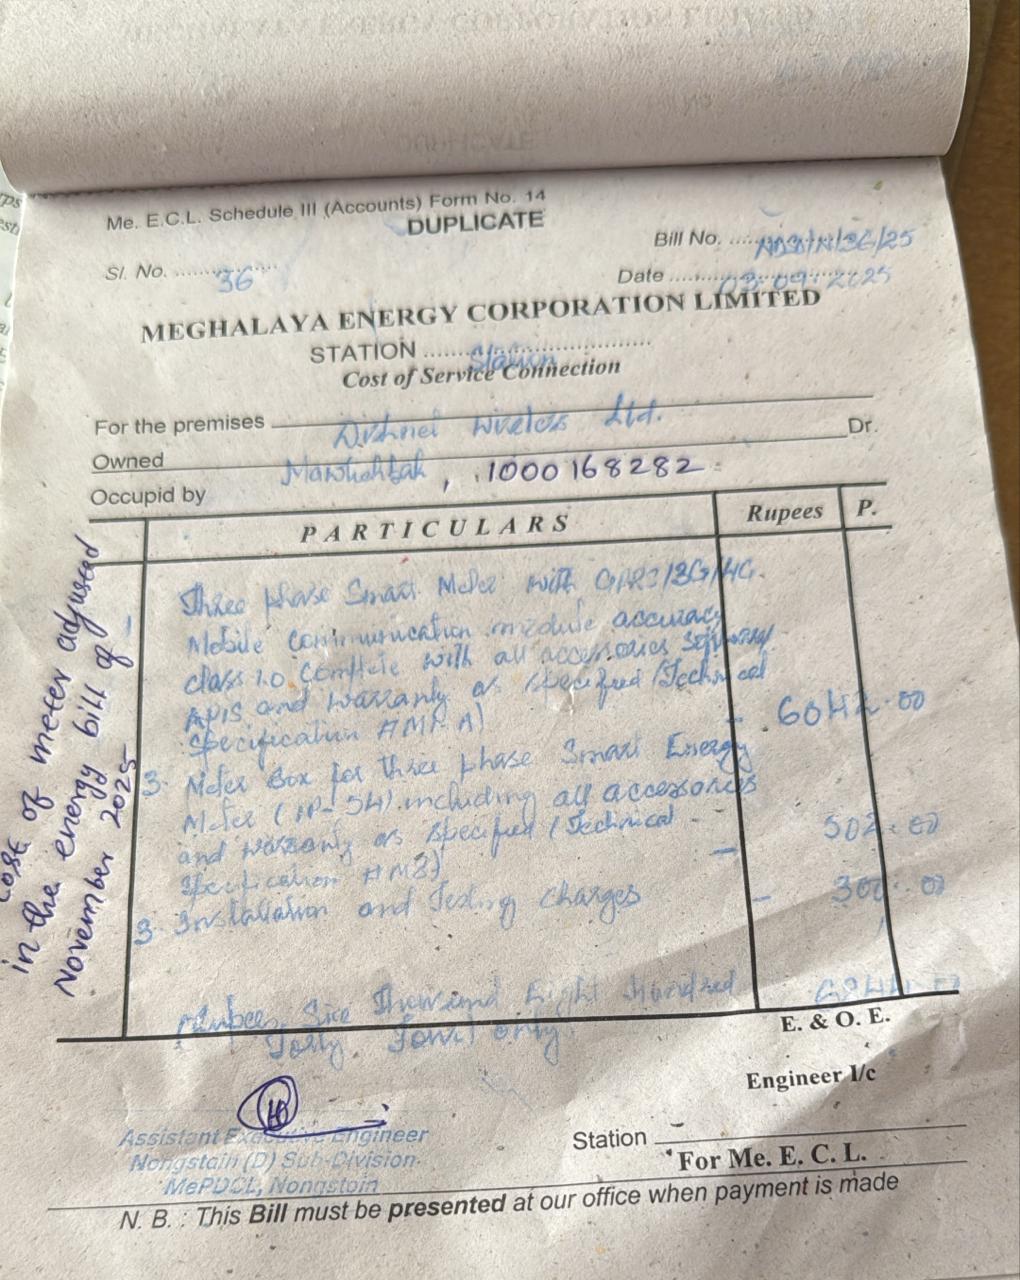 Me. E.C.L. Schedule III (Accounts) Form No. 14
DUPLICATE
Bill No. ..... /36/25
Sl. No. ........ 36
Date ........ 03.09.2025
MEGHALAYA ENERGY CORPORATION LIMITED
STATION ........
Cost of Service Connection
For the premises Dishnet Wireless Ltd.
Dr.
Owned
Occupid by , 1000168282
PARTICULARS Rupees P.
1 Three phase Smart Meter with GPRS/3G/4G
Mobile Communication module accuracy
class 1.0 Complete with all accessories
APIS and Warranty as specified (Technical
Specification AMR A) - 6042.00
3. Meter Box for three phase Smart Energy
Meter ( ) including all accessories
and Warranty as specified (Technical - 502.00
Specification
3. Installation and Testing Charges - 300.00
Rupees Six Thousand Eight Hundred 6844.00
Forty Four only.
cost of meter adjusted
in the energy bill of
November 2025
E. & O. E.
Engineer I/c
Assistant Executive Engineer
Nongstain (D) Sub-Division
MePDCL, Nongstoin
Station
For Me. E. C. L.
N. B. : This Bill must be presented at our office when payment is made